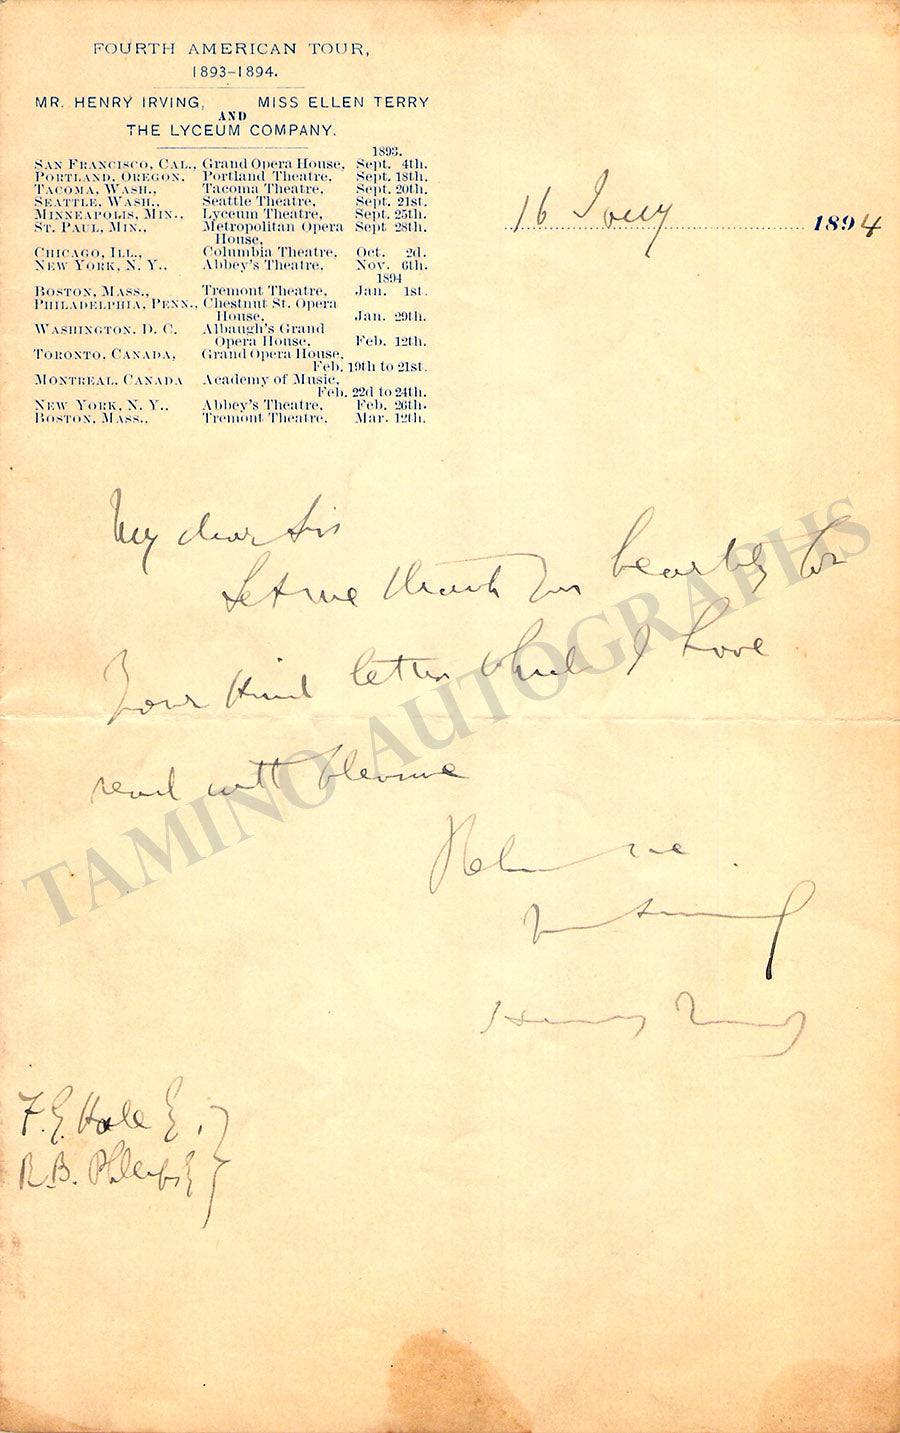 FOURTH AMERICAN TOUR,
1893-1894.
MR. HENRY IRVING, MISS ELLEN TERRY
AND
THE LYCEUM COMPANY.
1893.
SAN FRANCISCO, CAL., Grand Opera House, Sept. 4th.
PORTLAND, OREGON, Portland Theatre, Sept. 18th.
TACOMA, WASH., Tacoma Theatre, Sept. 20th.
SEATTLE, WASH., Seattle Theatre, Sept. 21st.
MINNEAPOLIS, MIN., Lyceum Theatre, Sept. 25th.
ST. PAUL, MIN., Metropolitan Opera Sept 28th.
House,
CHICAGO, ILL., Columbia Theatre, Oct. 2d.
NEW YORK, N. Y., Abbey's Theatre, Nov. 6th.
1894
BOSTON, MASS., Tremont Theatre, Jan. 1st.
PHILADELPHIA, PENN., Chestnut St. Opera
House, Jan. 29th.
WASHINGTON, D. C. Albaugh's Grand
Opera House, Feb. 12th.
TORONTO, CANADA, Grand Opera House,
Feb. 19th to 21st.
MONTREAL, CANADA Academy of Music,
Feb. 22d to 24th.
NEW YORK, N. Y., Abbey's Theatre, Feb. 26th.
BOSTON, MASS., Tremont Theatre, Mar. 12th.
16 Jany 1894
My dear Sir
Let me thank you heartily for
your kind letter which I have
read with pleasure
Believe me
Yours sincerely
Henry Irving
F. E. Hale E
R. B. Phillips E
TAMINO AUTOGRAPHS